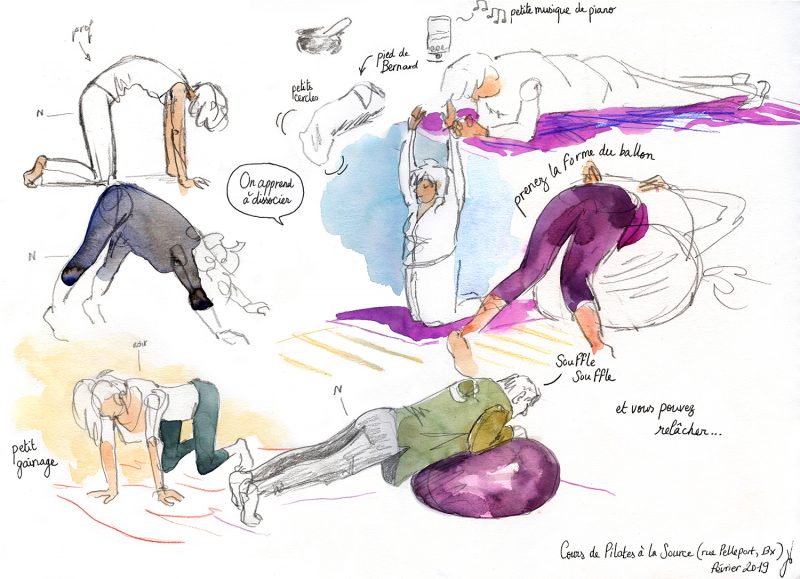 prof
petite musique de piano
pied de
Bernard
petits
cercles
N
On apprend
à dissocier
prenez la forme du ballon
N
noir
Souffle
Souffle
N
et vous pouvez
relâcher...
petit
gainage
Cours de Pilates à la Source (rue Pelleport, Bx)
février 2019